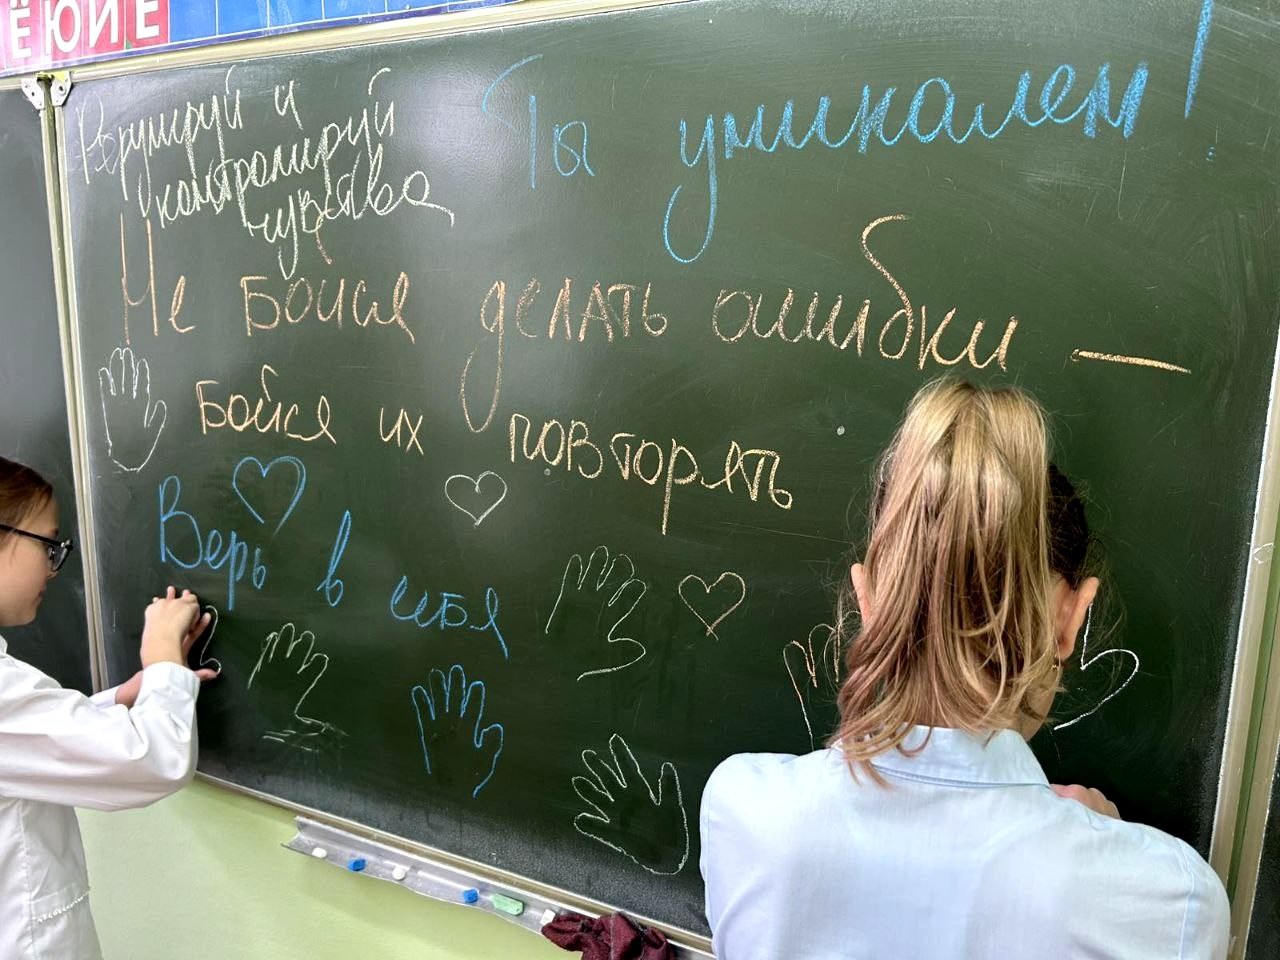 Ё Ю И Е
и
контролируй
чувства
Ты уникален!
Не Бойся делать ошибки —
Бойся их повторять
Верь в себя